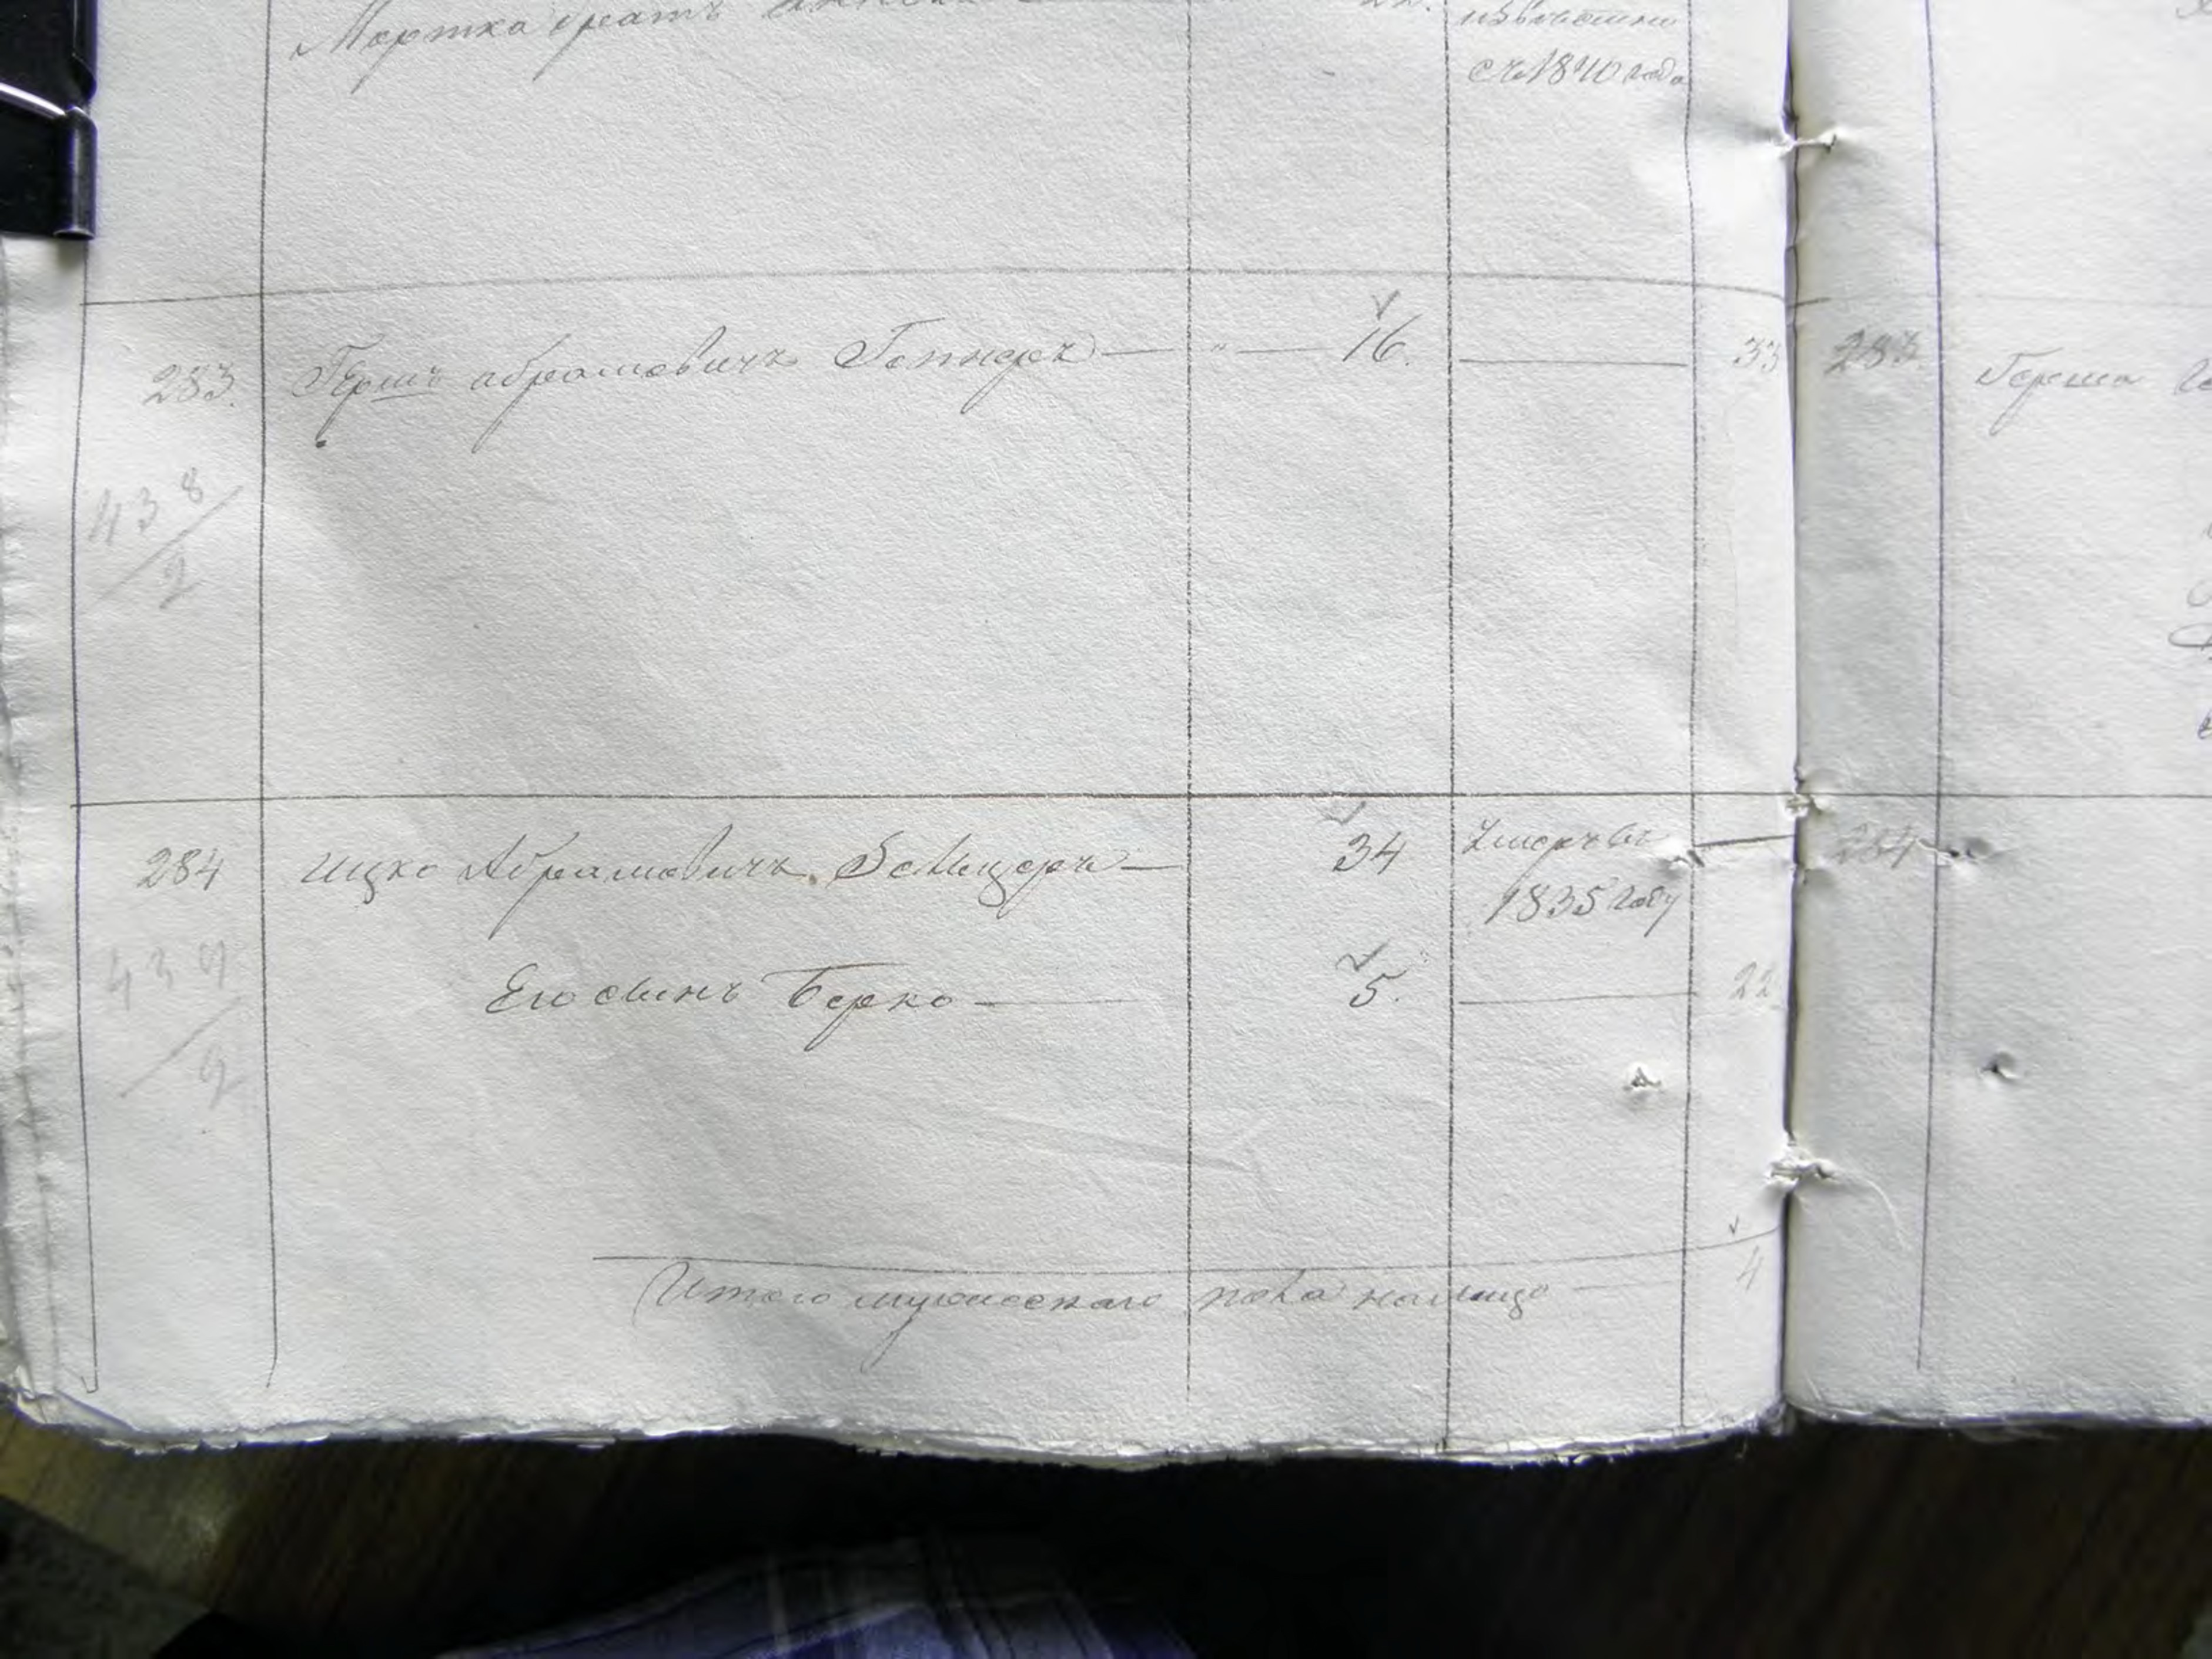 Мортка братъ
съ 1840 года
283. Гершъ Абрамовичъ Гепнеръ — " — 16. 33 283. Герша
438
2
284 Ицко Абрамовичъ 34 Умеръ въ 284
1835 году
439
Его сынъ Берко — 5. 22
2
Итого мужескаго пола налицо 4